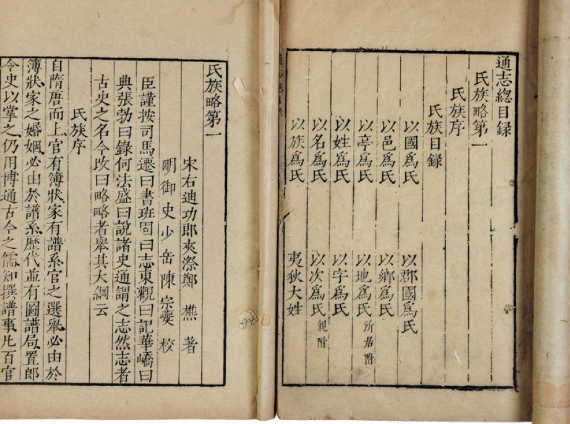 通志總目錄
氏族略第一
氏族序
氏族目錄
以國爲氏 以郡國爲氏
以邑爲氏 以鄉爲氏
以亭爲氏 以地爲氏所居附
以姓爲氏 以字爲氏
以名爲氏 以次爲氏親附
以族爲氏 夷狄大姓
氏族略第一
宋右迪功郎夾漈鄭樵著
明御史少岳陳宗夔校
臣謹按司馬遷曰書班固曰志東觀曰記華嶠曰
典張勃曰錄何法盛曰說諸史通謂之志然志者
古史之名今改曰略略者舉其大綱云
氏族序
自隋唐而上官有簿狀家有譜系官之選舉必由於
簿狀家之婚姻必由於譜系歷代並有圖譜局置郎
令史以掌之仍用博通古今之儒知撰譜事凡百官